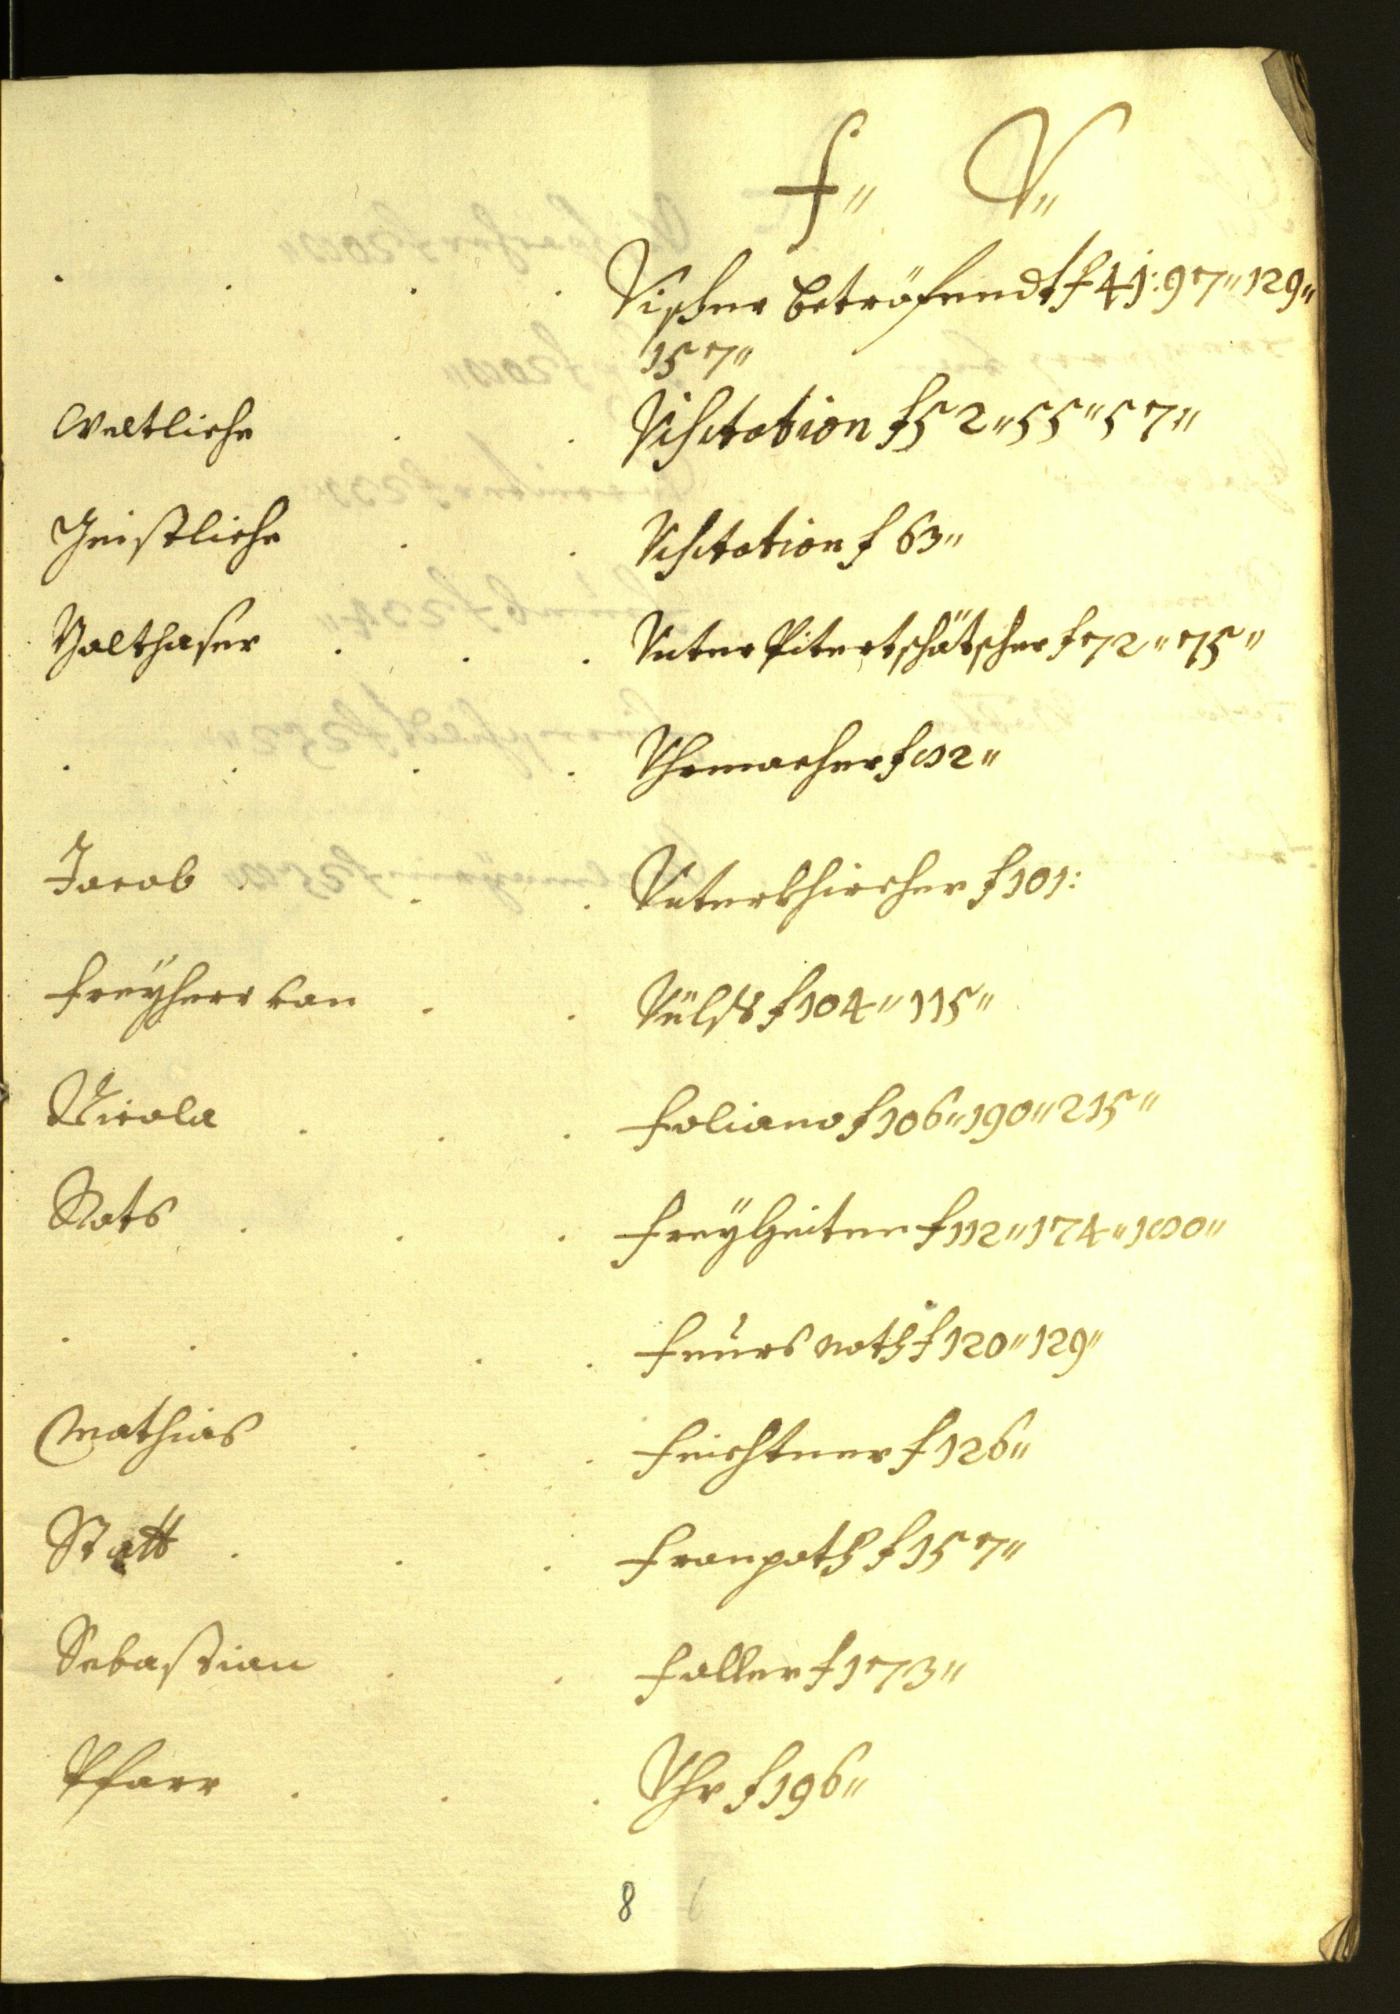 f" V"
Vischer betröfendt f 41: 97" 129"
157"
Weltliche . . Visitation f 52" 55" 57"
Geistliche . . Visitation f 63"
Walthaser . . . Unter Pitertschätscher f 72" 75"
. . . . Uhrmacher f 82"
Jacob . . . Unterkhircher f 101:
Freÿherr von . . Völss f 104" 115"
Nicola . . . Foliano f 106" 190" 215"
Rats . . . Freÿheiten f 112" 174" 180"
. . . . . Feürs noth f 120" 129"
Mathias . . . Feichtner f 126"
Statt . . . f 157"
Sebastian . . Faller f 173"
Pfarr . . . Uhr f 196"
8